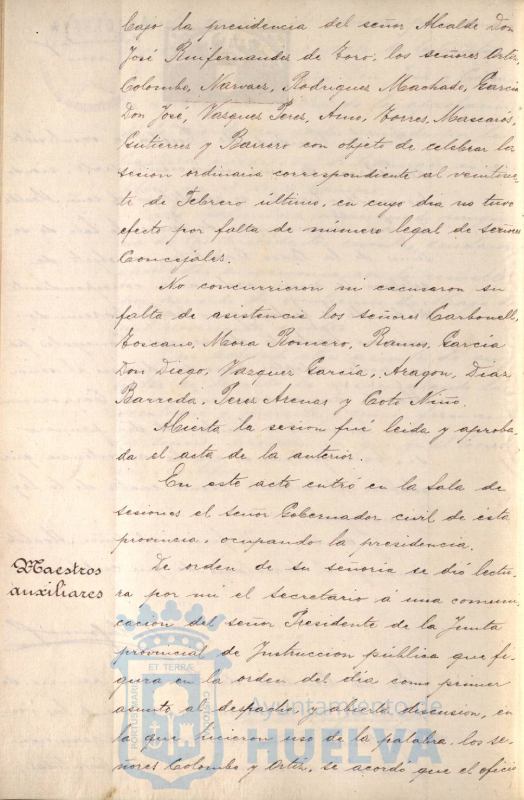 bajo la presidencia del señor Alcalde Don
José Ruifernandez de Toro, los señores Ortiz,
Colombo, Narvaez, Rodriguez Machado, Garcia
Don José, Vazquez Perez, Amo, Torres, Mascarós,
Gutierrez y Barrero con objeto de celebrar la
sesion ordinaria correspondiente al veintisie-
te de Febrero último, en cuyo dia no tuvo
efecto por falta de número legal de señores
Concejales.
No concurrieron ni excusaron su
falta de asistencia los señores Carbonell,
Toscano, Mora Romero, Ramos, Garcia
Don Diego, Vazquez Garcia, Aragon, Diaz
Barreda, Perez Arenas y Coto Niño.
Abierta la sesion fué leida y aproba-
da el acta de la anterior.
En este acto entró en la Sala de
sesiones el señor Gobernador civil de esta
provincia, ocupando la presidencia.
Maestros
auxiliares
De orden de su señoria se dió lectu-
ra por mi el secretario á una comuni-
cacion del señor Presidente de la Junta
provincial de Instruccion pública que fi-
gura en la orden del dia como primer
asunto al despacho, y abierta discusion, en
la que hicieron uso de la palabra los se-
ñores Colombo y Ortiz, se acordó que el oficio
PORTUS MARIS ET TERRÆ CUSTODIA
Ayuntamiento de
HUELVA